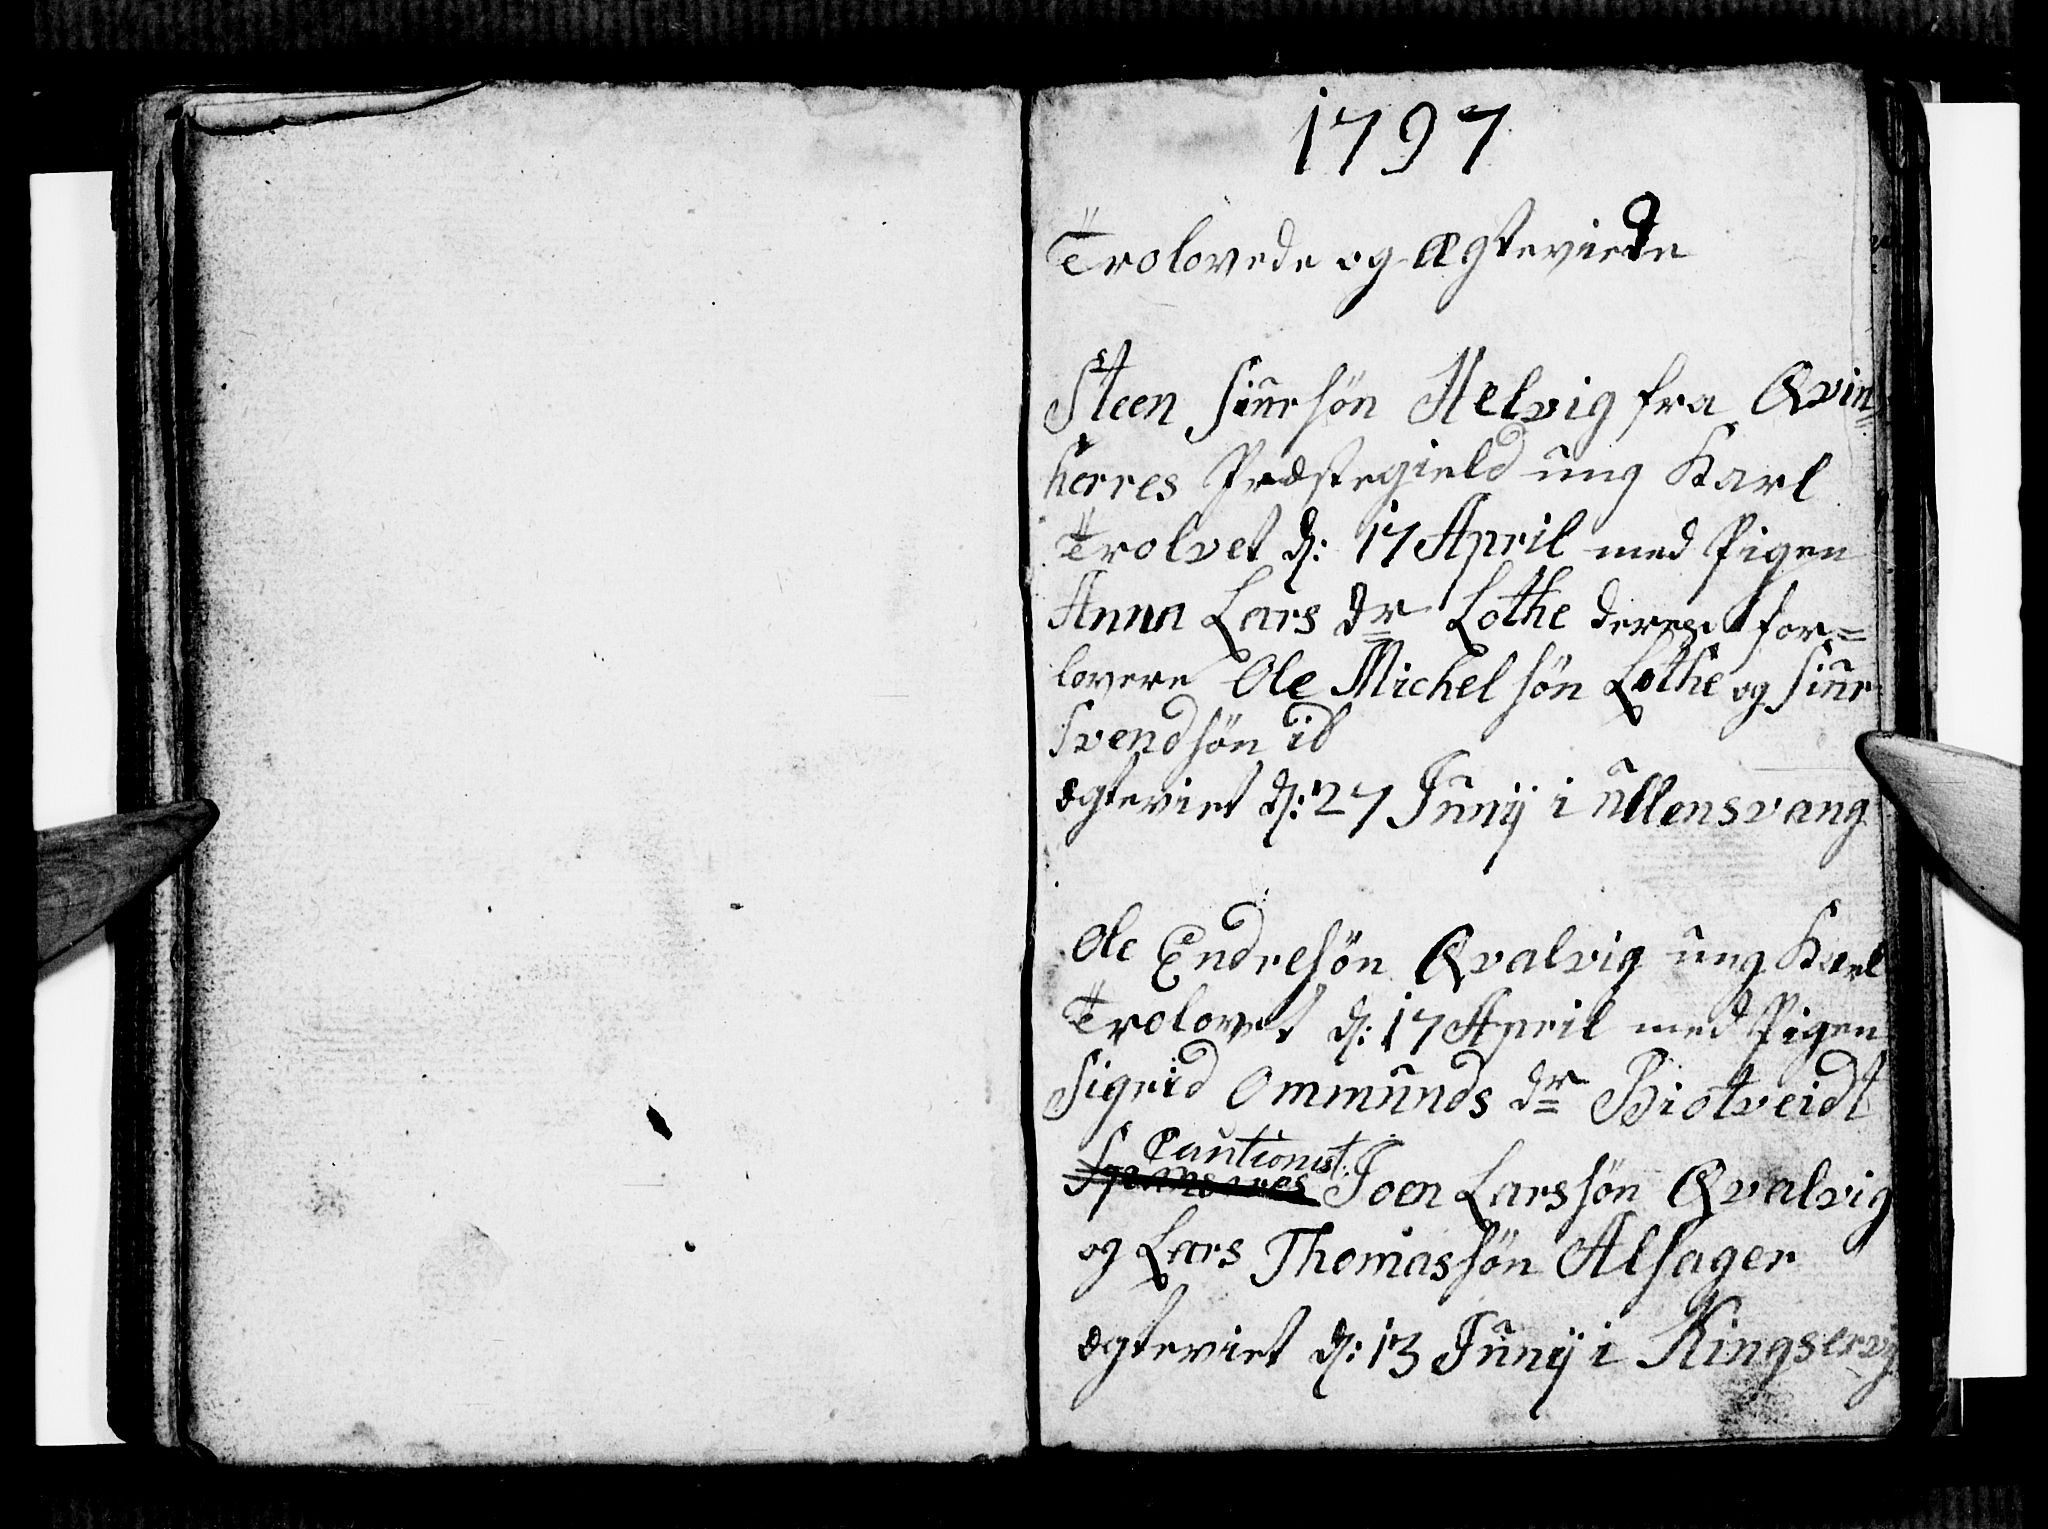 1797
Trolovede og Ægteviede
Steen Siursøn Helvig fra Qvin=
herres Præstegield ung Karl
Trolvet d: 17 April med Pigen
Anna Lars dr Lothe deres for=
lovere Ole Michelsøn Lothe og Siur
Svendsøn ib
ægteviet d: 27 Junÿ i Ullensvang
Ole Endresøn Qvalvig ung Karl
Trolovet d: 17 April med Pigen
Sigrid Ommunds dr Biotveidt
Cautionist:
Joen Larssøn Qvalvig
og Lars Thomassøn Alsager
ægteviet d: 13 Junÿ i Kingservig